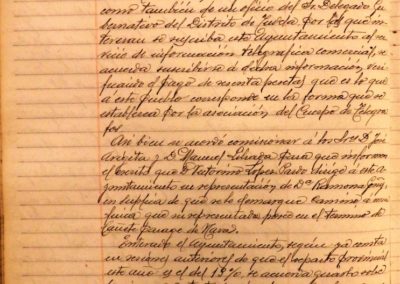 como también de un oficio del Sr. Delegado Gu
bernativo del Distrito de Tudela por los que
interesan se suscriba este Ayuntamiento al ser
vicio de información telegrafica comercial, se
acuerda suscribirse á dicha información, veri
ficando el pago de sesenta pesetas que es lo que
á este pueblo corresponde en la forma que se
establezca por la asociación del Cuerpo de Telegra
fos
Asi bien se acordó comisionar á los Sres D. José
y D. Manuel para que informen
el escrito que D. Victorino López Pardo dirige á este A
yuntamiento en representación de Dª Ramona
en suplica de que se le demarque camino á una
finca que su representada posee en el termino de
de Nava.
Enterado el Ayuntamiento, según ya consta
en sesiones anteriores de que el reparto provincial
este año y el del 19%, se acuerda